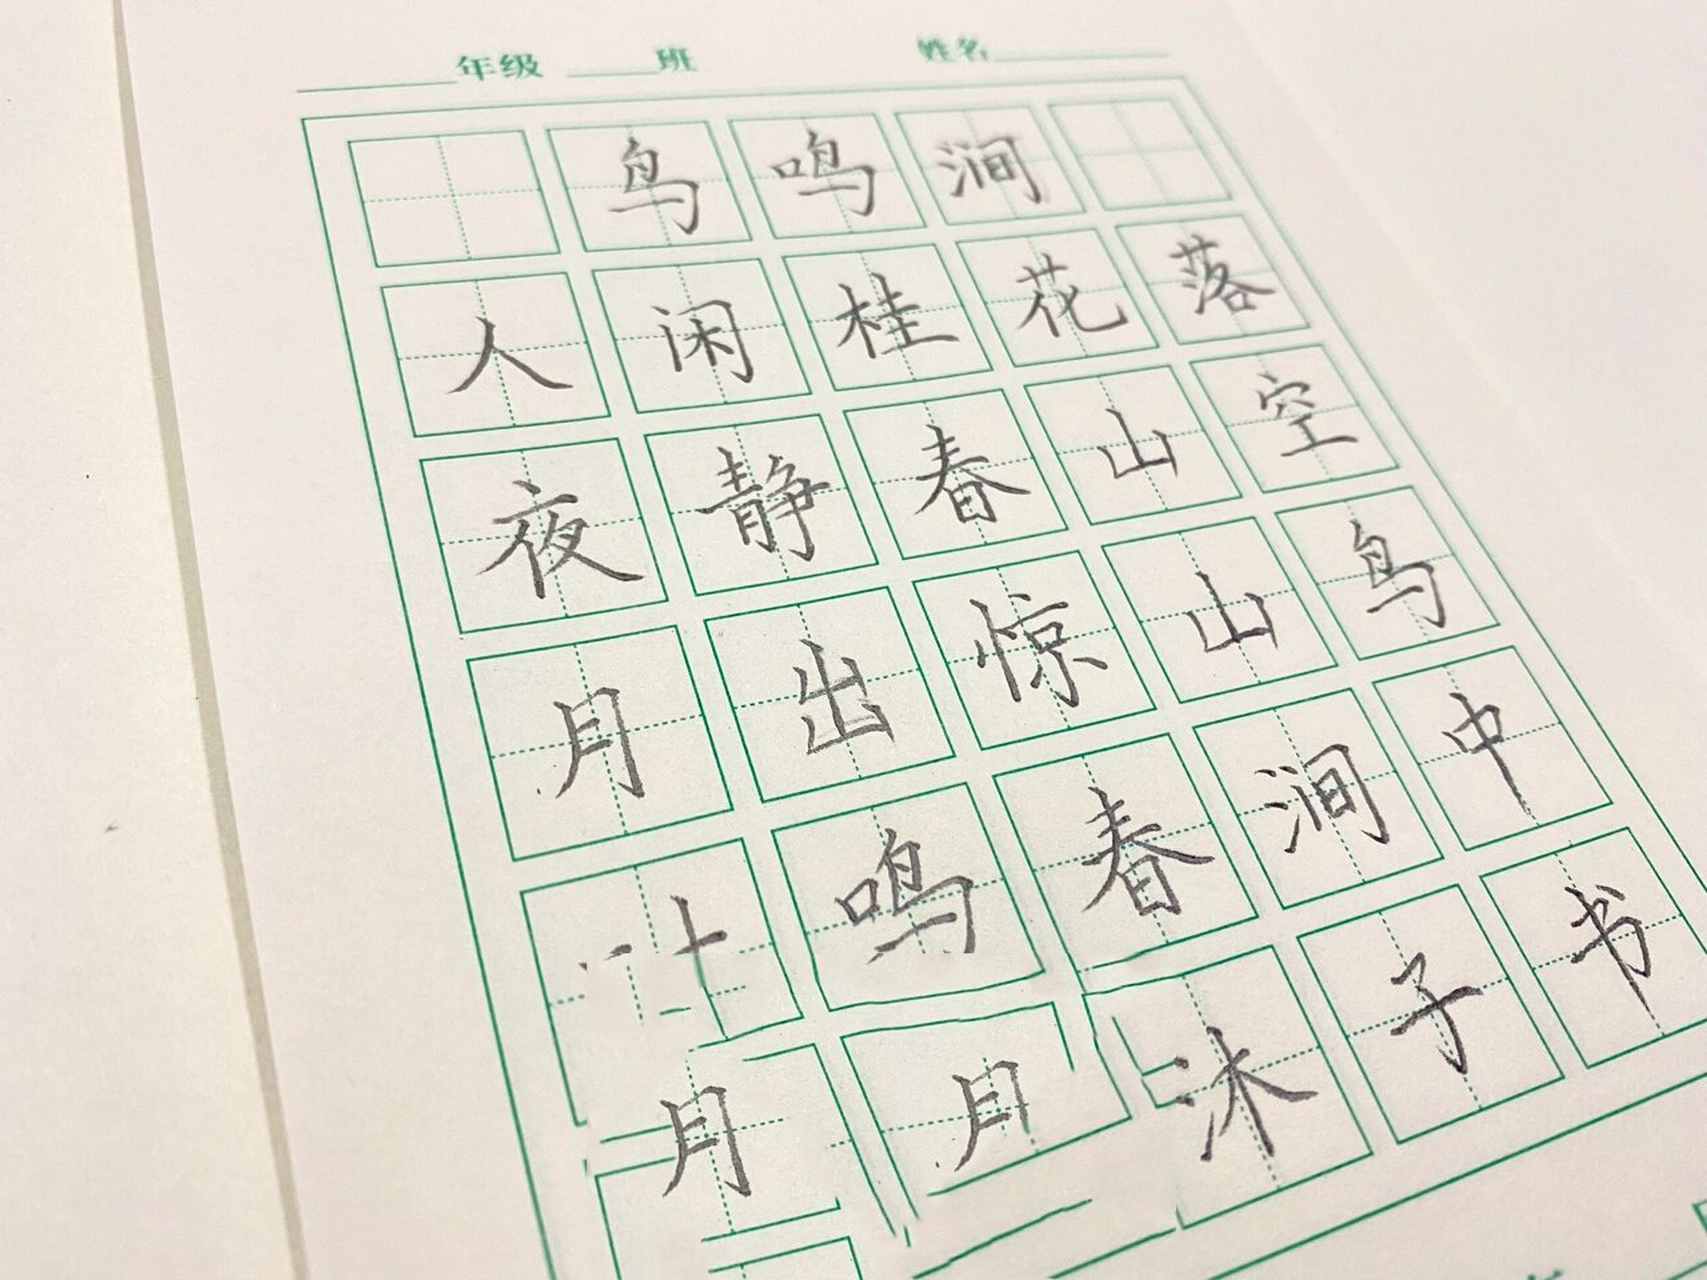 年级 班 姓名
鸟鸣涧
人闲桂花落
夜静春山空
月出惊山鸟
鸣春涧中
月月沐子书